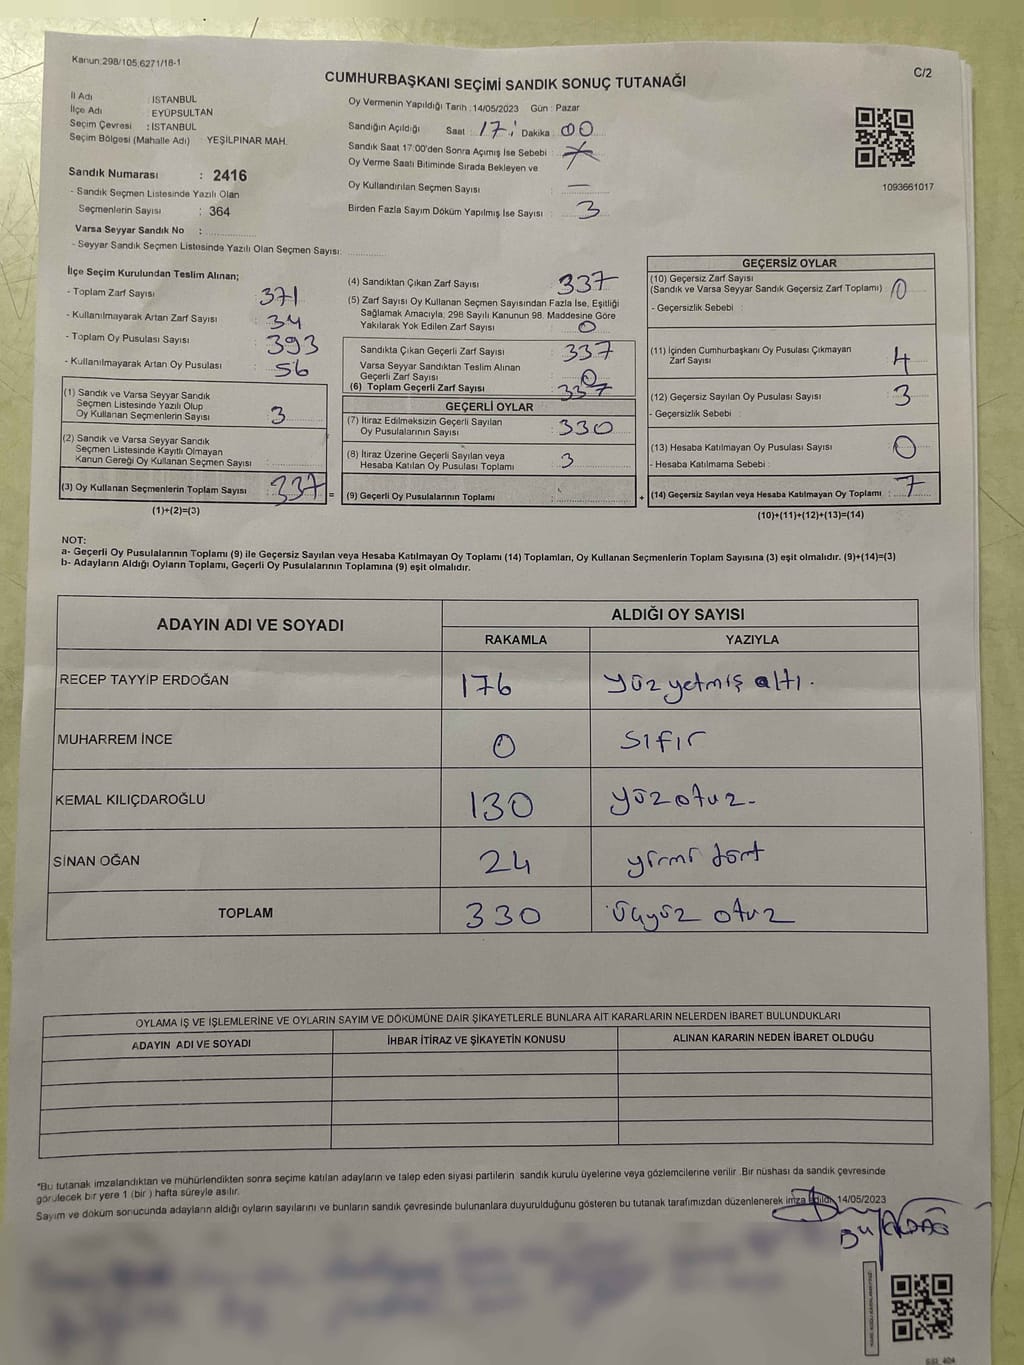 Kanun:298/105,6271/18-1
C/2
CUMHURBAŞKANI SEÇİMİ SANDIK SONUÇ TUTANAĞI
İl Adı : İSTANBUL
İlçe Adı : EYÜPSULTAN
Seçim Çevresi : İSTANBUL
Seçim Bölgesi (Mahalle Adı) YEŞİLPINAR MAH.
Sandık Numarası : 2416
- Sandık Seçmen Listesinde Yazılı Olan
Seçmenlerin Sayısı : 364
Varsa Seyyar Sandık No :
- Seyyar Sandık Seçmen Listesinde Yazılı Olan Seçmen Sayısı:
Oy Vermenin Yapıldığı Tarih : 14/05/2023 Gün : Pazar
Sandığın Açıldığı Saat : 17: Dakika : 00
Sandık Saat 17:00'den Sonra Açımış İse Sebebi :
Oy Verme Saati Bitiminde Sırada Bekleyen ve
Oy Kullandırılan Seçmen Sayısı : —
Birden Fazla Sayım Döküm Yapılmış İse Sayısı : 3
1093661017
İlçe Seçim Kurulundan Teslim Alınan;
- Toplam Zarf Sayısı : 371
- Kullanılmayarak Artan Zarf Sayısı : 34
- Toplam Oy Pusulası Sayısı : 393
- Kullanılmayarak Artan Oy Pusulası : 56
(1) Sandık ve Varsa Seyyar Sandık
Seçmen Listesinde Yazılı Olup
Oy Kullanan Seçmenlerin Sayısı : 3
(2) Sandık ve Varsa Seyyar Sandık
Seçmen Listesinde Kayıtlı Olmayan
Kanun Gereği Oy Kullanan Seçmen Sayısı :
(3) Oy Kullanan Seçmenlerin Toplam Sayısı : 337
(1)+(2)=(3)
=
(4) Sandıktan Çıkan Zarf Sayısı : 337
(5) Zarf Sayısı Oy Kullanan Seçmen Sayısından Fazla İse, Eşitliği
Sağlamak Amacıyla, 298 Sayılı Kanunun 98. Maddesine Göre
Yakılarak Yok Edilen Zarf Sayısı : 0
Sandıkta Çıkan Geçerli Zarf Sayısı : 337
Varsa Seyyar Sandıktan Teslim Alınan
Geçerli Zarf Sayısı : 0
(6) Toplam Geçerli Zarf Sayısı : 337
GEÇERLİ OYLAR
(7) İtiraz Edilmeksizin Geçerli Sayılan
Oy Pusulalarının Sayısı : 330
(8) İtiraz Üzerine Geçerli Sayılan veya
Hesaba Katılan Oy Pusulası Toplamı : 3
(9) Geçerli Oy Pusulalarının Toplamı :
+
GEÇERSİZ OYLAR
(10) Geçersiz Zarf Sayısı
(Sandık ve Varsa Seyyar Sandık Geçersiz Zarf Toplamı) : 0
- Geçersizlik Sebebi :
(11) İçinden Cumhurbaşkanı Oy Pusulası Çıkmayan
Zarf Sayısı : 4
(12) Geçersiz Sayılan Oy Pusulası Sayısı : 3
- Geçersizlik Sebebi :
(13) Hesaba Katılmayan Oy Pusulası Sayısı : 0
- Hesaba Katılmama Sebebi :
(14) Geçersiz Sayılan veya Hesaba Katılmayan Oy Toplamı : 7
(10)+(11)+(12)+(13)=(14)
NOT:
a- Geçerli Oy Pusulalarının Toplamı (9) ile Geçersiz Sayılan veya Hesaba Katılmayan Oy Toplamı (14) Toplamları, Oy Kullanan Seçmenlerin Toplam Sayısına (3) eşit olmalıdır. (9)+(14)=(3)
b- Adayların Aldığı Oyların Toplamı, Geçerli Oy Pusulalarının Toplamına (9) eşit olmalıdır.
ADAYIN ADI VE SOYADI
ALDIĞI OY SAYISI
RAKAMLA YAZIYLA
RECEP TAYYİP ERDOĞAN 176 yüz yetmiş altı.
MUHARREM İNCE 0 sıfır
KEMAL KILIÇDAROĞLU 130 yüz otuz.
SİNAN OĞAN 24 yirmi dört
TOPLAM 330 üçyüz otuz
OYLAMA İŞ VE İŞLEMLERİNE VE OYLARIN SAYIM VE DÖKÜMÜNE DAİR ŞİKAYETLERLE BUNLARA AİT KARARLARIN NELERDEN İBARET BULUNDUKLARI
ADAYIN ADI VE SOYADI İHBAR İTİRAZ VE ŞİKAYETİN KONUSU ALINAN KARARIN NEDEN İBARET OLDUĞU
*Bu tutanak imzalandıktan ve mühürlendikten sonra seçime katılan adayların ve talep eden siyasi partilerin sandık kurulu üyelerine veya gözlemcilerine verilir .Bir nüshası da sandık çevresinde
görülecek bir yere 1 (bir ) hafta süreyle asılır.
Sayım ve döküm sonucunda adayların aldığı oyların sayılarını ve bunların sandık çevresinde bulunanlara duyurulduğunu gösteren bu tutanak tarafımızdan düzenlenerek imza edildi. 14/05/2023